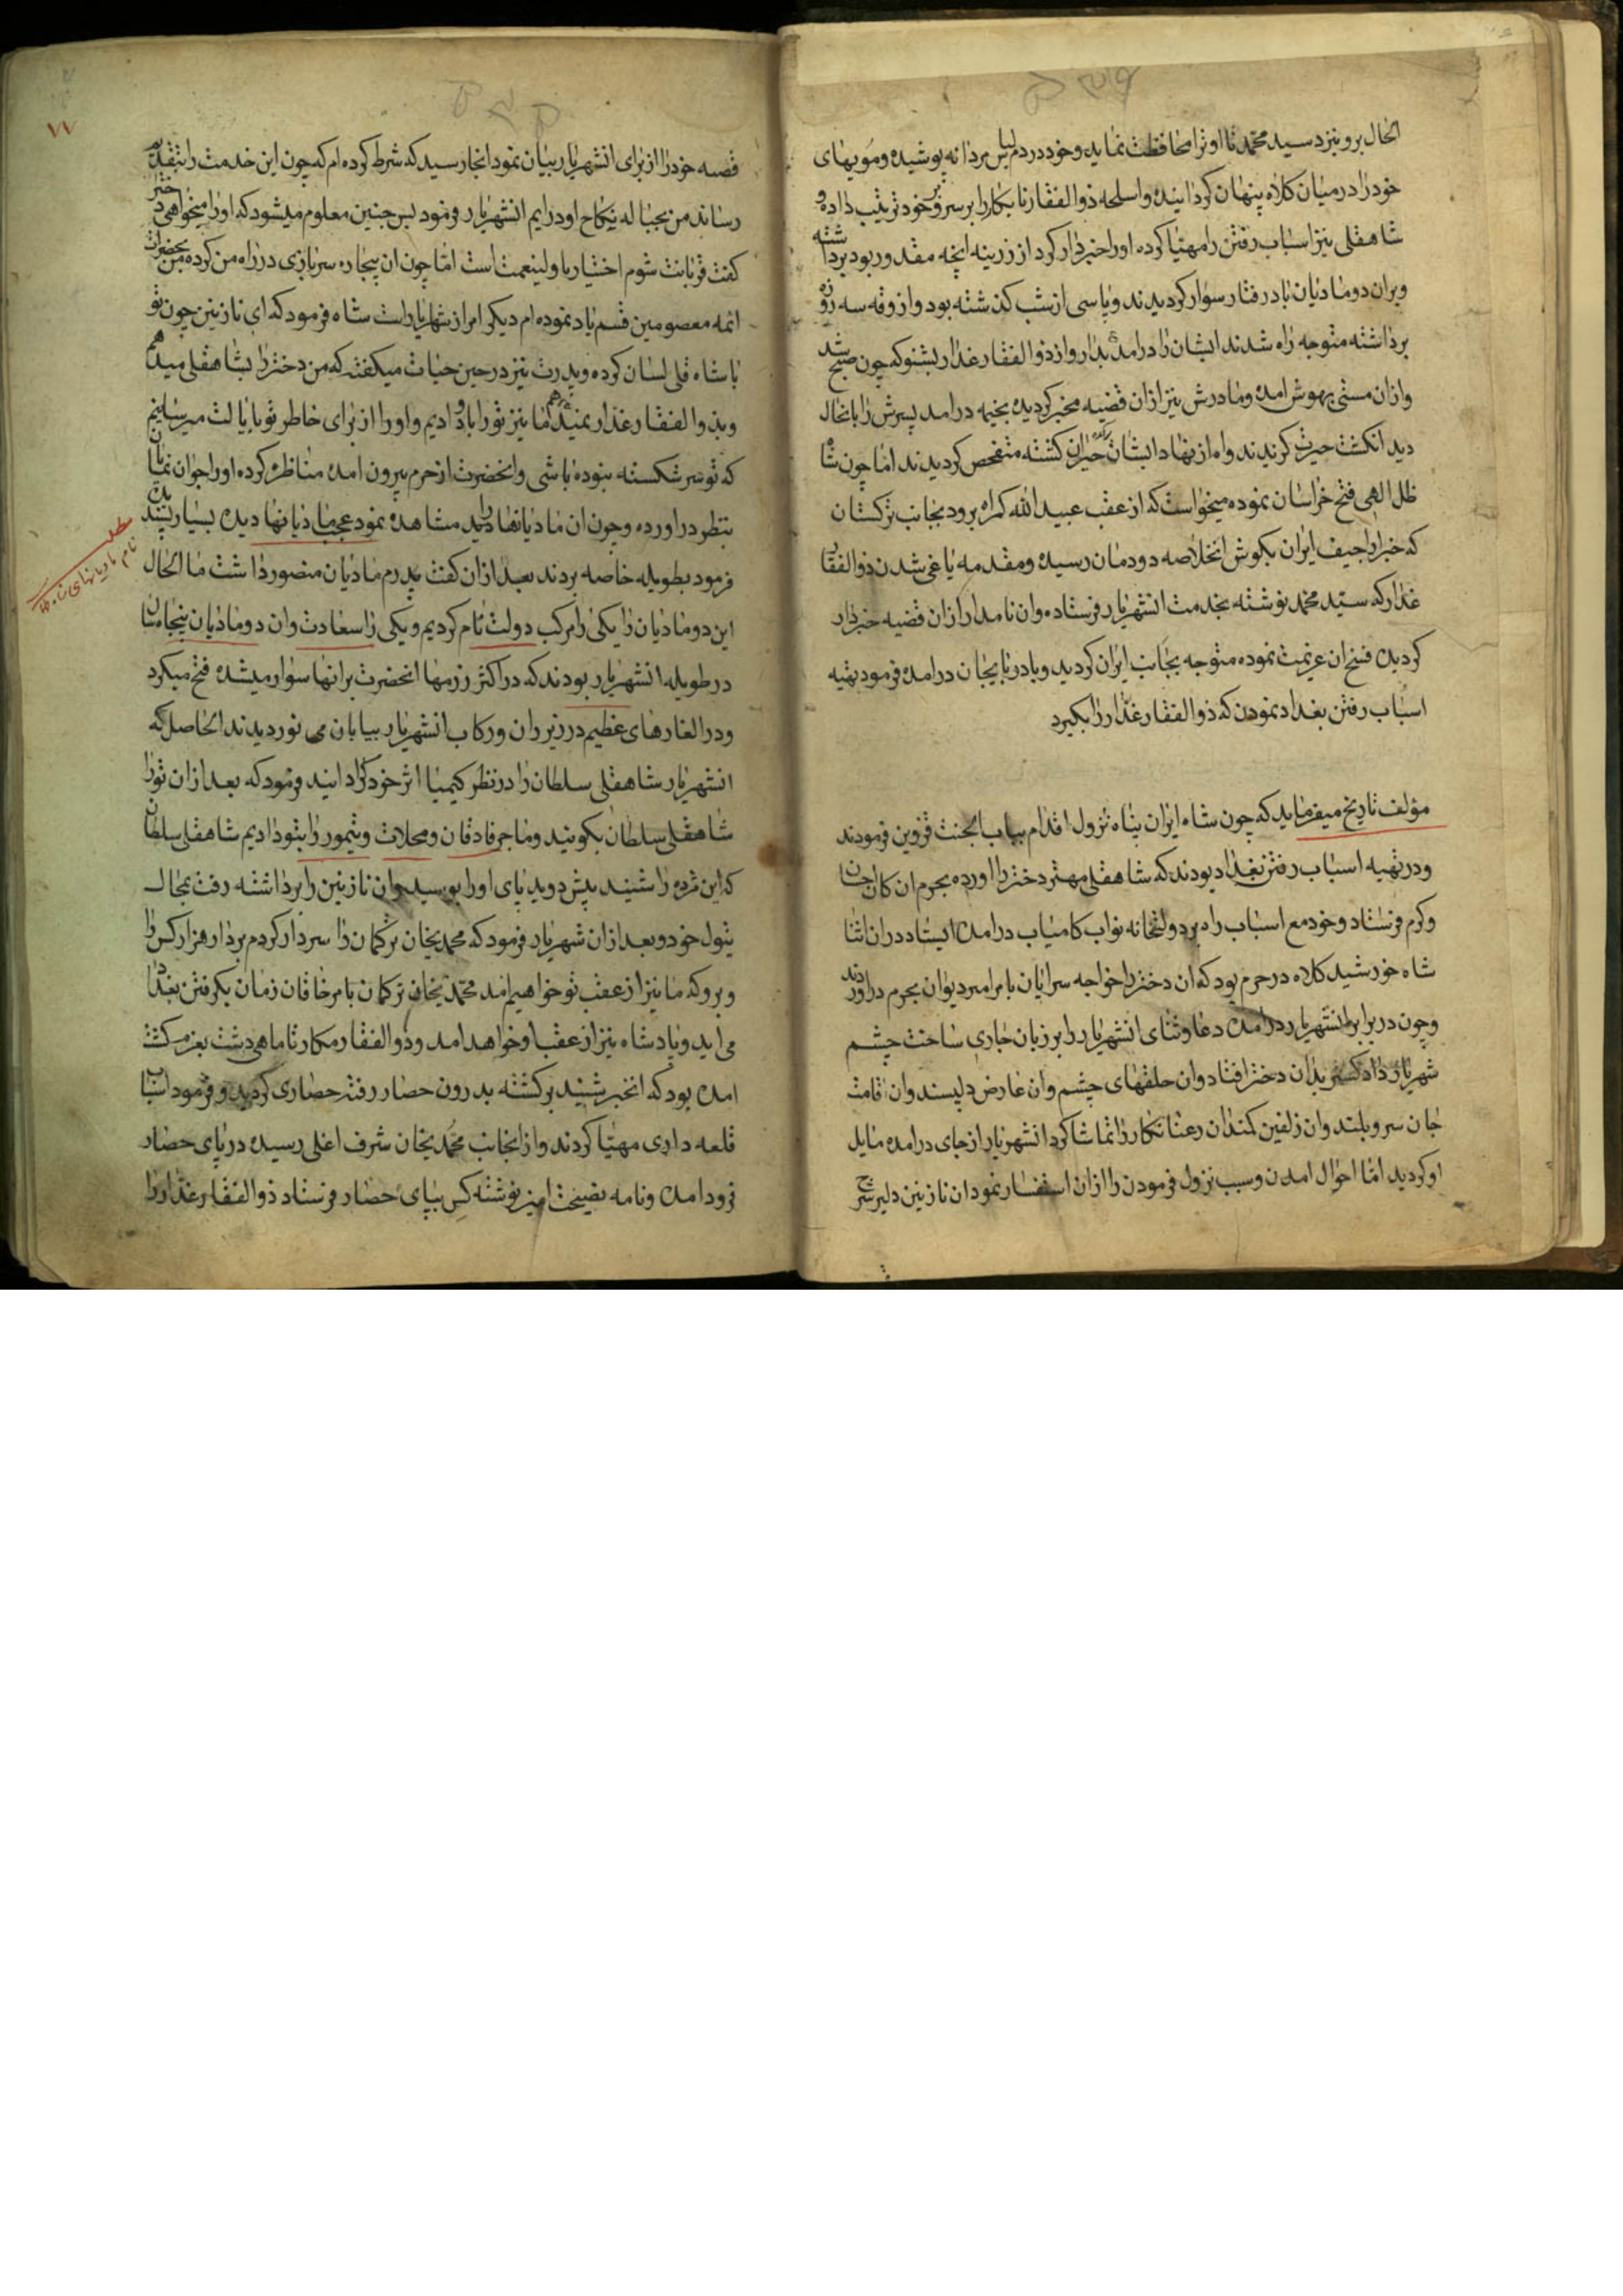 الحال برو بنزد سید محمد تا او ترا محافظت نماید و خود در دم لباس مردانه پوشیده و مویهای
خود را در میان کلاه پنهان کردانیده و اسلحه ذوالفقار نابکار را بر سر و بر خود ترتیب داده و
شاهقلی نیز اسباب رفتن را مهیا کرده او را خبردار کرد از زرینه انچه مقدور بود برداشته
و بران دو مادیان باد رفتار سوار کردیدند و پاسی از شب کذشته بود و ازوقه سه روزه
برداشته متوجه راه شدند ایشان را در امدن بدار و از ذوالفقار غدار بشنو که چون صبح شد
و ازان مستی بهوش امده و مادرش نیز ازان قضیه مخبر کردیده بخیمه درامد پسرش را بانحال
دید انکشت حیرت کزیدند و اه از نهاد ایشان برامد حیران کشته متفحص کردیدند اما چون شاه
ظل الهی فتح خراسان نموده میخواست که از عقب عبید الله کمراه برود بجانب ترکستان
که خبر اراجیف ایران بکوش انخلاصه دودمان رسیده و مقدمه یاغی شدن ذوالفقار
غدار که سید محمد نوشته بخدمت انشهریار فرستاده و ان نامدار ازان قضیه خبردار
کردیده فسخ ان عزیمت نموده متوجه بجانب ایران کردید و بادربایجان درامده فرمود بتهیه
اسباب رفتن بغداد نمودن که ذوالفقار غدار را بکیرد
مؤلف تاریخ میفرماید که چون شاه ایران پناه نزول اقدام بباب الجنت قزوین فرمودند
و در تهیه اسباب رفتن بغداد بودند که شاهقلی مهتر دختر را اورده بحرم ان کان احسان
و کرم فرستاد و خود مع اسباب را در دولتخانه نواب کامیاب درامده ایستاد دران اثنا
شاه خورشید کلاه در حرم بود که ان دختر را خواجه سرایان بامر امیر دیوان بحرم دراوردند
و چون در برابر انشهریار درامده دعا و ثنای انشهریار را بر زبان جاری ساخت چشم
شهریار دادکستر بدان دختر افتاد و ان حلقهای چشم و ان عارض دلپسند و ان قامت
جان سرو بلند و ان زلفین کمندان رعنا نکار را تماشا کرد انشهریار از جای درامده مایل
او کردید اما احوال امدن و سبب نزول فرمودن را ازان استفسار نمود ان نازنین دلیر شرح
۷۷
قصه خود را از برای انشهریار بیان نمود انجا رسید که شرط کرده ام که چون این خدمت را بتقدیم
رساند من بحباله نکاح او درایم انشهریار فرمود پس چنین معلوم میشود که او را میخواهی دختر
کفت قربانت شوم اختیار با ولینعمت است اما چون ان بیچاره سربازی در راه من کرده من بحضرات
ائمه معصومین قسم یاد نموده ام دیکر امر از شهریار است شاه فرمود که ای نازنین چون تو
با شاه قلی لسان کرده و پدرت نیز در حین حیات میکفته که من دختر را بشاهقلی میدهم
و بذوالفقار غدار نمیدهم ما نیز ترا باو دادیم و او را از برای خاطر تو بایالت میرسانیم
که تو سر شکسته نبوده باشی و انحضرت از حرم بیرون امده مناظره کرده او را جوان نمایان
بنظر دراورده و چون ان مادیانها را دید مشاهده نمود عجب مادیانها دیده بسیار پسندیده
فرمود بطویله خاصه بردند بعد ازان کفت پدرم مادیان منصور داشت ما الحال
این دو مادیان را یکی را مرکب دولت نام کردیم و یکی را سعادت و ان دو مادیان نیجامشان
در طویله انشهریار بودند که در اکثر رزمها انحضرت برانها سوار میشده فتح میکرد
و در الغارهای عظیم در زیر ران و رکاب انشهریار بیابان می نوردیدند الحاصل که
انشهریار شاهقلی سلطان را در نظر کیمیا اثر خود کزرانید و فرمود که بعد ازان تو را
شاهقلی سلطان بکویند و ما جرفادقان و محلات و نیمور را بتو دادیم شاهقلی سلطان
که این مژده را شنید پیش دوید پای او را بوسید و ان نازنین را برداشته رفت بمحال
تیول خود و بعد ازان شهریار فرمود که محمدیخان ترکمان را سردار کردم بردار هزار کس را
و برو که ما نیز از عقب تو خواهیم امد محمدیخان ترکمان بامر خاقان زمان بکرفتن بغداد
می اید و پادشاه نیز از عقب او خواهد امد و ذوالفقار مکار تا ماهی دشت بعزم کشت
امده بود که انخبر شنید برکشته بدرون حصار رفته حصاری کردید و فرمود اسباب
قلعه داری مهیا کردند و از انجانب محمدیخان شرف اغلی رسیده در پای حصار
فرود امده و نامه نصیحت امیز نوشته کس بپای حصار فرستاد ذوالفقار غدار را
نام مادیانهای شاه